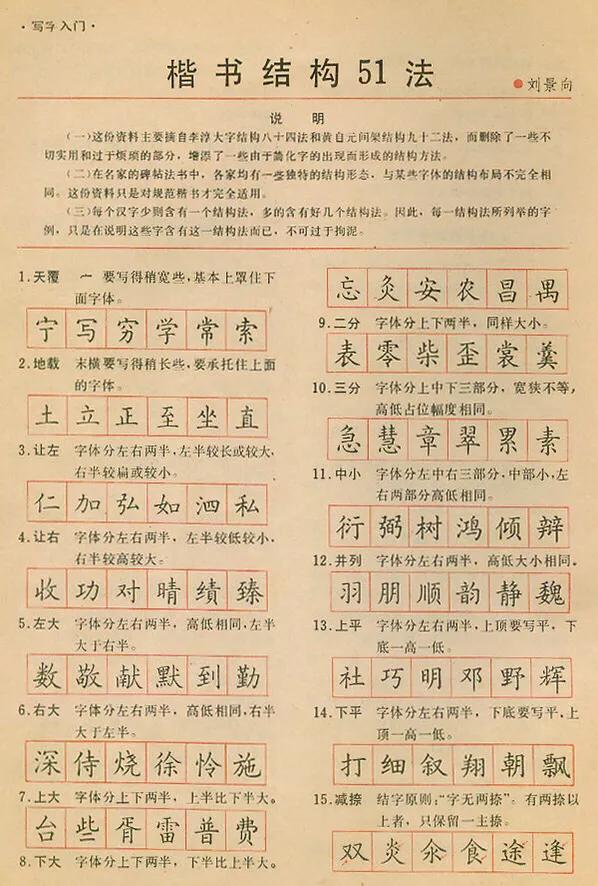 ·写字入门·
楷书结构51法
●刘景向
说 明
(一)这份资料主要摘自李淳大字结构八十四法和黄自元间架结构九十二法，而删除了一些不
切实用和过于烦琐的部分，增添了一些由于简化字的出现而形成的结构方法。
(二)在名家的碑帖法书中，各家均有一些独特的结构形态，与某些字体的结构布局不完全相
同。这份资料只是对规范楷书才完全适用。
(三)每个汉字少则含有一个结构法，多的含有好几个结构法。因此，每一结构法所列举的字
例，只是在说明这些字含有这一结构法而已，不可过于拘泥。
1.天覆 宀 要写得稍宽些，基本上罩住下
面字体。
宁写穷学常索
2.地载 末横要写得稍长些，要承托住上面
的字体。
土立正至坐直
3.让左 字体分左右两半，左半较长或较大，
右半较扁或较小。
仁加弘如泗私
4.让右 字体分左右两半，左半较低较小，
右半较高较大。
收功对晴绩臻
5.左大 字体分左右两半，高低相同，左半
大于右半。
数敬献默到勤
6.右大 字体分左右两半，高低相同，右半
大于左半。
深侍烧徐怜施
7.上大 字体分上下两半，上半比下半大。
台些胥雷普费
8.下大 字体分上下两半，下半比上半大。
忘灸安农昌禺
9.二分 字体分上下两半，同样大小。
表零柴歪裳羹
10.三分 字体分上中下三部分，宽狭不等，
高低占位幅度相同。
急慧章翠累素
11.中小 字体分左中右三部分，中部小，左
右两部分高低相同。
衍弼树鸿倾辩
12.并列 字体分左右两半，高低大小相同。
羽朋顺韵静魏
13.上平 字体分左右两半，上顶要写平，下
底一高一低。
社巧明邓野辉
14.下平 字体分左右两半，下底要写平，上
顶一高一低。
打细叙翔朝飘
15.减捺 结字原则："字无两捺"。有两捺以
上者，只保留一主捺。
双炎氽食途逢